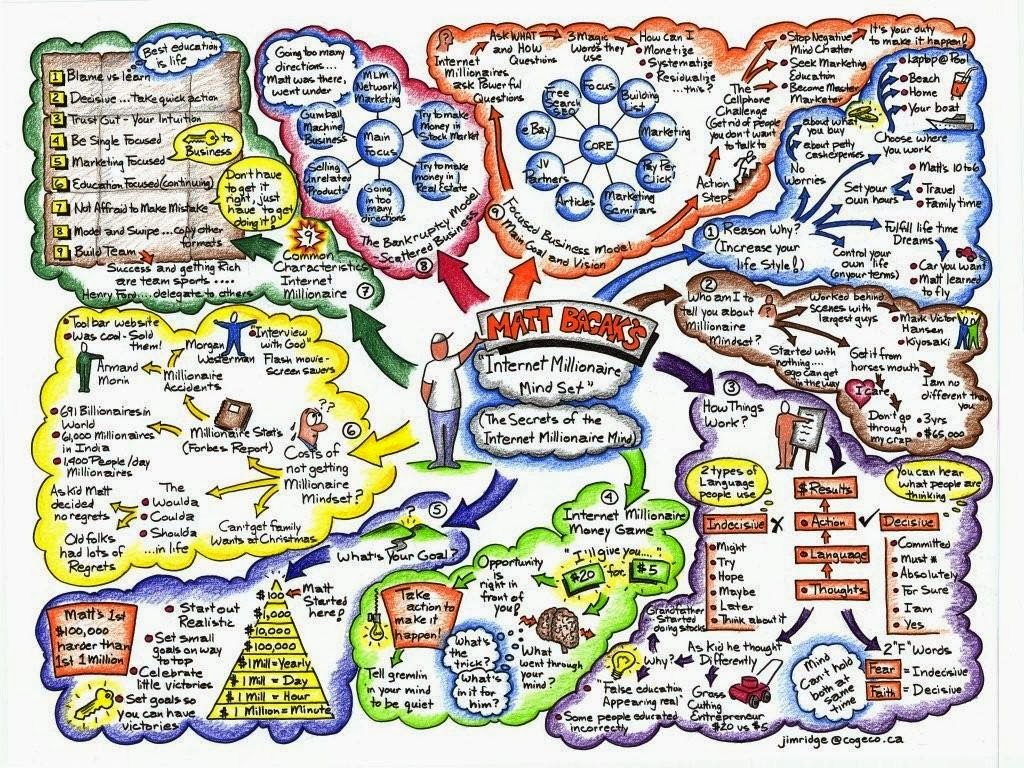 MATT BACAK'S
"Internet Millionaire
Mind Set"
(The Secrets of the
Internet Millionaire Mind)
1 Reason Why?
(Increase your
life Style!)
No
Worries
about petty
cash expenses
about what
you buy
Choose where
you work
Laptop @ Pool
Beach
Home
Your boat
Set your
own hours
Matt's 10 to 6
Travel
Family time
Control your
own life
(on your terms)
Fulfill life time
Dreams
Car you want
Matt learned
to fly
2
Who am I to
tell you about
Millionaire
Mindset?
Worked behind
scenes with
largest guys
Mark Victor
Hansen
Kiyosaki
Started with
nothing....
ego can get
in the way
Get it from
horses mouth
I care
Don't go
through
my crap
I am no
different than
you
3yrs
$65,000
3
How Things
Work?
2 types of
Language
people use
You can hear
what people are
thinking
$ Results
Action
Language
Thoughts
Indecisive
Might
Try
Hope
Maybe
Later
Think about it
Decisive
Committed
Must
Absolutely
For Sure
I am
Yes
2 "F" Words
Fear = Indecisive
Faith = Decisive
Mind
Can't hold
both at
same
time
As Kid he thought
Differently
Grass
Cutting
Entrepreneur
$20 vs $5
Why?
Grandfather
Started
doing stocks
"False education
Appearing real"
Some people educated
incorrectly
4
Internet Millionaire
Money Game
"I'll give you...."
$20 for $5
What
went through
your mind?
What's
the trick?
What's
in it for
him?
Opportunity
is right in
front of
you!
Take
action to
make it
happen!
Tell gremlin
in your mind
to be quiet
5
What's Your Goal?
$100
$1,000
$10,000
$100,000
$1 Mill = Yearly
$1 Mill = Day
$1 Mill = Hour
$1 Million = Minute
Matt
Started
here!
Start out
Realistic
Set small
goals on way
to top
Celebrate
little victories
Set goals so
you can have
victories
Matt's 1st
$100,000
harder than
1st 1 Million
6
Costs of
not getting
Millionaire
Mindset?
Millionaire
Accidents
Morgan
Westerman
"Interview
with God"
Flash movie -
Screen savers
Armand
Morin
Tool bar website
Was cool - Sold
them!
Millionaire Stats
(Forbes Report)
691 Billionaires in
World
61,000 Millionaires
in India
1,400 People/day
Millionaires
The
Woulda
Coulda
Shoulda
...in life
As kid Matt
decided
no regrets
Old folks
had lots of
Regrets
Can't get family
Wants at Christmas
7
9
Common
Characteristics
Internet
Millionaire
Best education
is life
1 Blame vs learn
2 Decisive ... take quick action
3 Trust Gut - Your Intuition
4 Be Single Focused
5 Marketing Focused
6 Education Focused (continuing)
7 Not Affraid to Make Mistake
8 Model and Swipe ... copy other
formats
9 Build Team
Success and getting Rich
are team sports ....
Henry Ford.... delegate to others
to
Business
Don't have
to get it
right, just
have to get
doing it!
8
The Bankruptcy Model
- Scattered Business
Going too many
directions...
Matt was there,
went under
Main
Focus
MLM
Network
Marketing
Try to make
money in
Stock Market
Try to make
money in
Real Estate
Going
in too many
directions
Selling
Unrelated
Products
Gumball
Machine
Business
9
Focused Business Model
Main Goal and Vision
CORE
Focus
Building
List
Marketing
Pay Per
Click
Marketing
Seminars
Articles
JV
Partners
e Bay
Free
Search
SEO
Internet
Millionaires
ask Powerful
Questions
Ask WHAT
and HOW
Questions
3 Magic
Words they
use
How can I
Monetize
Systematize
Residualize
...this?
Action
Steps
The
Cellphone
Challenge
(Get rid of people
you don't want
to talk to
Stop Negative
Mind Chatter
Seek Marketing
Education
Become Master
Marketer
It's your duty
to make it happen!
jimridge@cogeco.ca